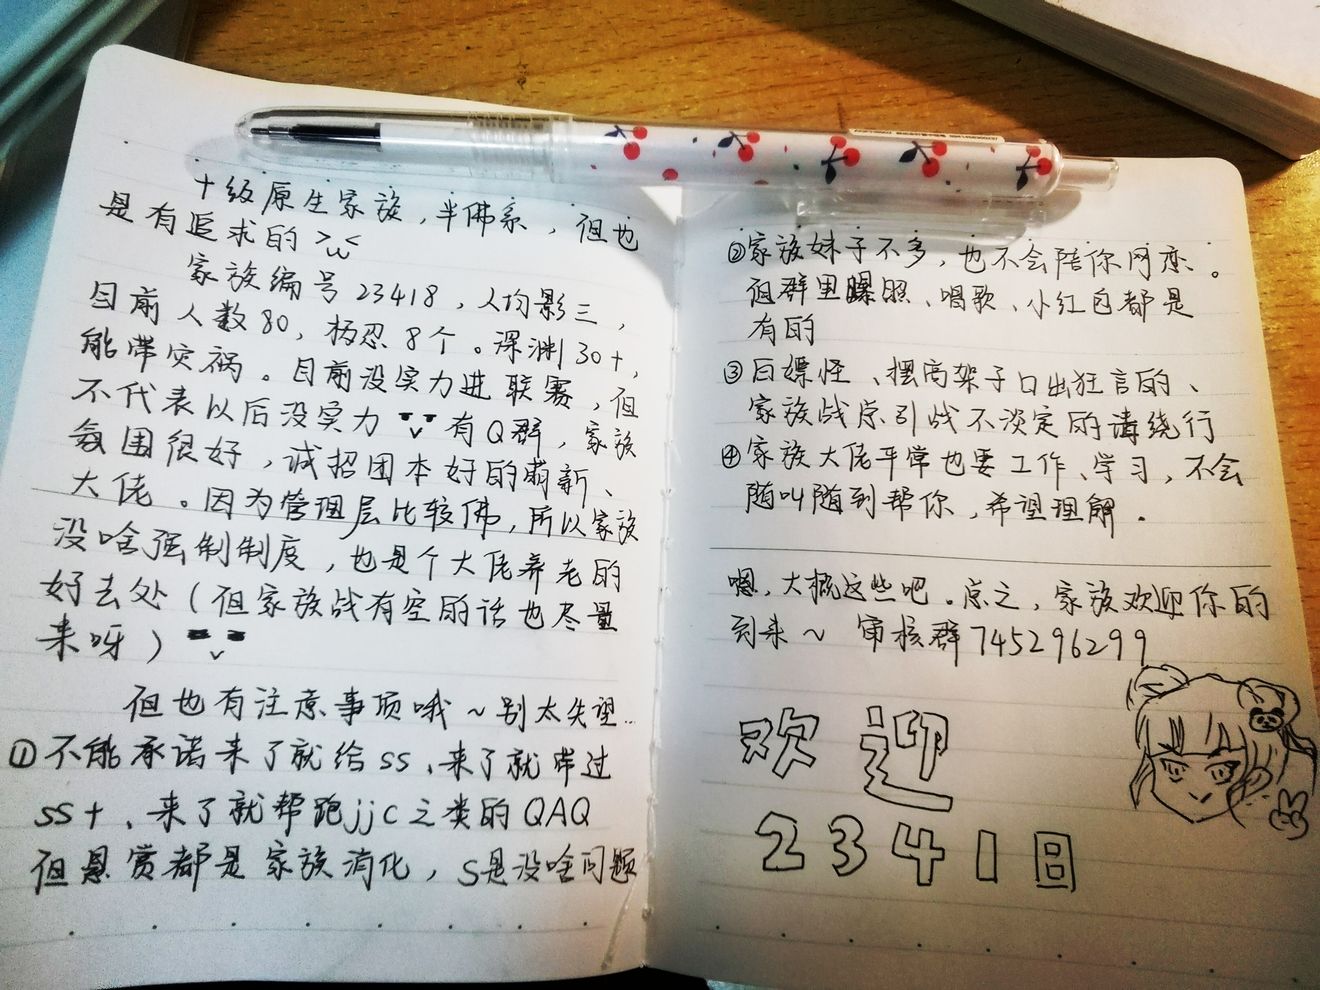 十级原生家族，半佛系，但也
是有追求的 >ω<
家族编号23418，人均影三，
目前人数80，杨忍8个。深渊30+，
能带灾祸。目前没实力进联赛，但
不代表以后没实力 有Q群，家族
氛围很好，诚招团本好的萌新、
大佬。因为管理层比较佛，所以家族
没啥强制制度，也是个大佬养老的
好去处（但家族战有空的话也尽量
来呀）
但也有注意事项哦~别太失望…
①不能承诺来了就给ss、来了就带过
ss+、来了就帮跑jjc之类的QAQ
但悬赏都是家族消化，S是没啥问题
②家族妹子不多，也不会陪你网恋。
但群里曝照、唱歌、小红包都是
有的
③白嫖怪、摆高架子口出狂言的、
家族战总引战不淡定的请绕行
④家族大佬平常也要工作、学习，不会
随叫随到帮你，希望理解.
嗯，大概这些吧。总之，家族欢迎你的
到来~ 审核群745296299
欢迎
23418